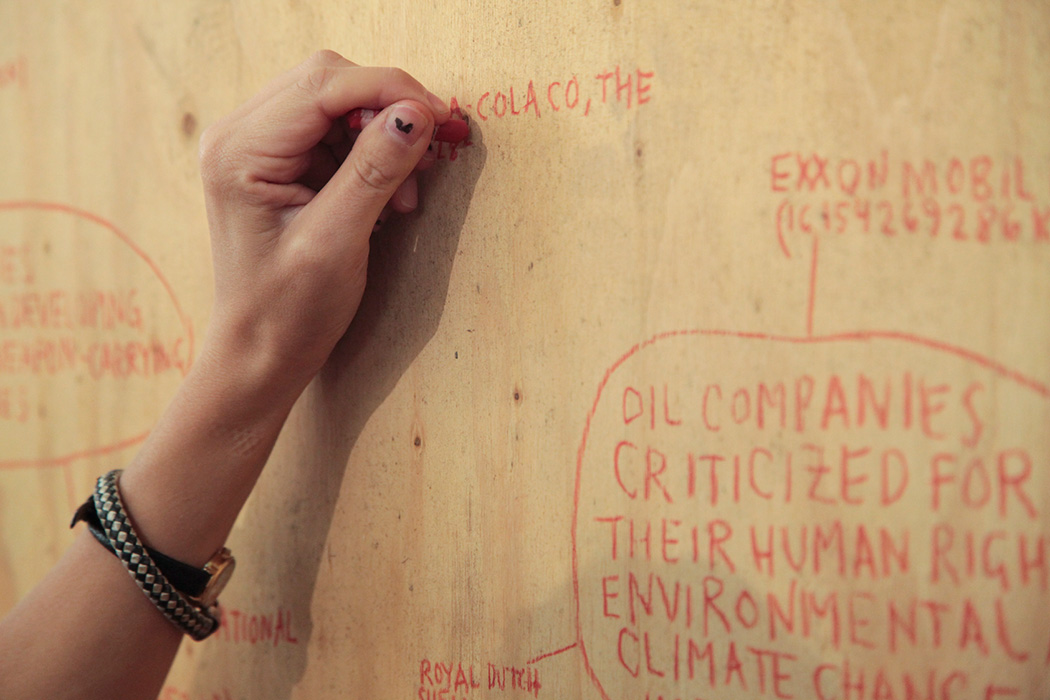 COLA CO, THE
EXXON MOBIL
(16154269286 K
DEVELOPING
WEAPON-CARRYING
OIL COMPANIES
CRITICIZED FOR
THEIR HUMAN RIGH
ENVIRONMENTAL
CLIMATE CHANG
ATIONAL
ROYAL DUTCH